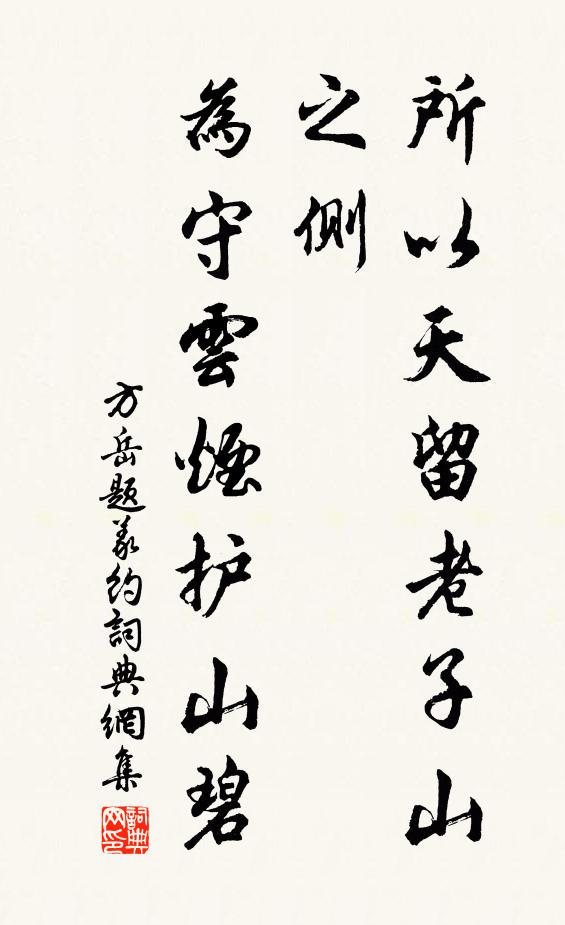 所以天留老子山
之側
為守雲煙护山碧
方岳題義約詞典網集
詞典網印